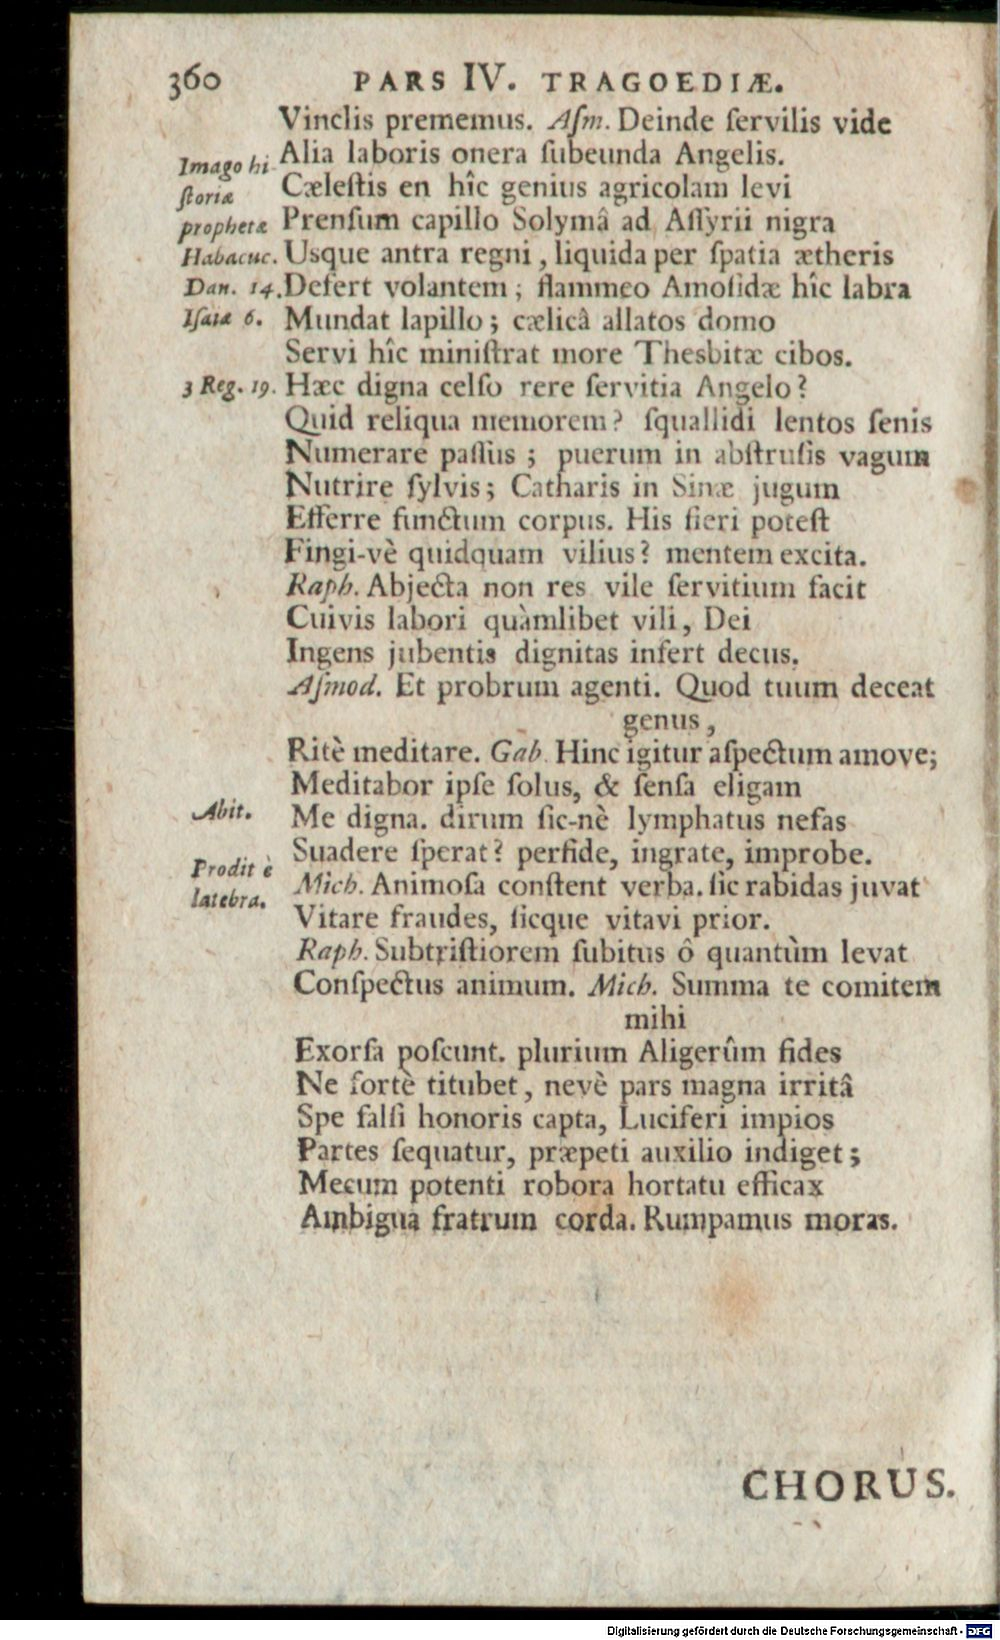 360 PARS IV. TRAGOEDIÆ.
Vinclis prememus. Aſm. Deinde ſervilis vide
Imago hi- Alia laboris onera ſubeunda Angelis.
ſtoriæ Cæleſtis en hîc genius agricolam levi
prophetæ Prenſum capillo Solymâ ad Aſſyrii nigra
Habacuc. Usque antra regni, liquida per ſpatia ætheris
Dan. 14. Defert volantem; flammeo Amoſidæ hîc labra
Iſaiæ 6. Mundat lapillo; cælicâ allatos domo
Servi hîc miniſtrat more Thesbitæ cibos.
3 Reg. 19. Hæc digna celſo rere ſervitia Angelo?
Quid reliqua memorem? ſquallidi lentos ſenis
Numerare paſſus; puerum in abſtruſis vagum
Nutrire ſylvis; Catharis in Sinæ jugum
Efferre functum corpus. His fieri poteſt
Fingi-vè quidquam vilius? mentem excita.
Raph. Abjecta non res vile ſervitium facit
Cuivis labori quàmlibet vili, Dei
Ingens jubentis dignitas infert decus.
Aſmod. Et probrum agenti. Quod tuum deceat
genus,
Ritè meditare. Gab. Hinc igitur aſpectum amove;
Meditabor ipſe ſolus, & ſenſa eligam
Abit. Me digna. dirum ſic-nè lymphatus nefas
Suadere ſperat? perfide, ingrate, improbe.
Prodit è Mich. Animoſa conſtent verba. ſic rabidas juvat
latebra. Vitare fraudes, ſicque vitavi prior.
Raph. Subtriſtiorem ſubitus ô quantùm levat
Conſpectus animum. Mich. Summa te comitem
mihi
Exorſa poſcunt. plurium Aligerûm fides
Ne fortè titubet, nevè pars magna irritâ
Spe falſi honoris capta, Luciferi impios
Partes ſequatur, præpeti auxilio indiget;
Mecum potenti robora hortatu efficax
Ambigua fratrum corda. Rumpamus moras.
CHORUS.
Digitalisierung gefördert durch die Deutsche Forschungsgemeinschaft - DFG